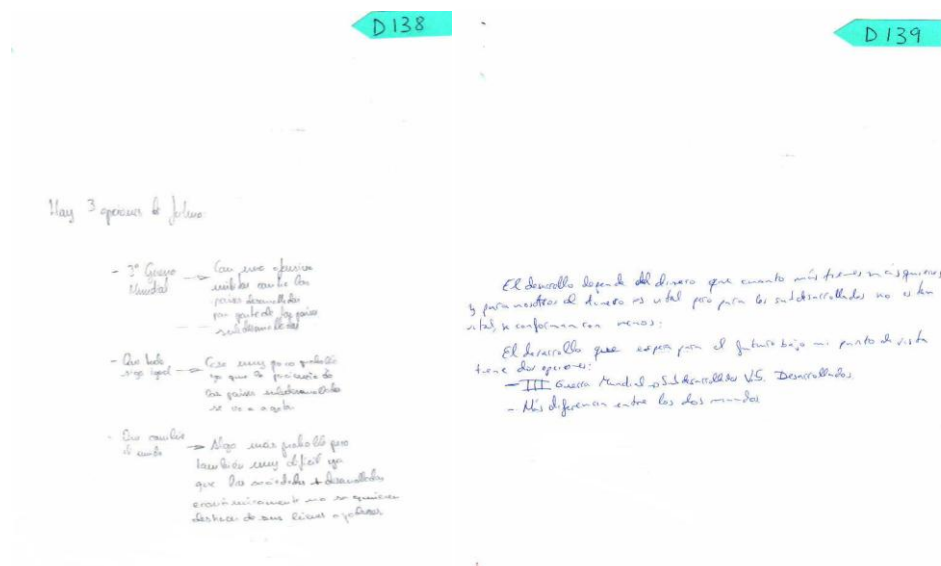 D138
Hay 3 opciones de futuro:
- 3ª Guerra Mundial → Con una ofensiva
militar contra los
países desarrollados
por parte de los países
subdesarrollados
- Que todo siga igual → Cosa muy poco probable
ya que la paciencia de
los países subdesarrollados
se va a agotar
- Que cambie el mundo → Algo más probable pero
también muy difícil ya
que las sociedades + desarrolladas
económicamente no se quieren
deshacer de sus bienes
D139
El desarrollo depende del dinero que cuanto más tienes más quieres
y para nosotros el dinero es vital pero para los subdesarrollados no es tan
vital, se conforman con menos.
El desarrollo que espera para el futuro bajo mi punto de vista
tiene dos opciones:
- III Guerra Mundial → Subdesarrollados V.S. Desarrollados
- Más diferencia entre los dos mundos